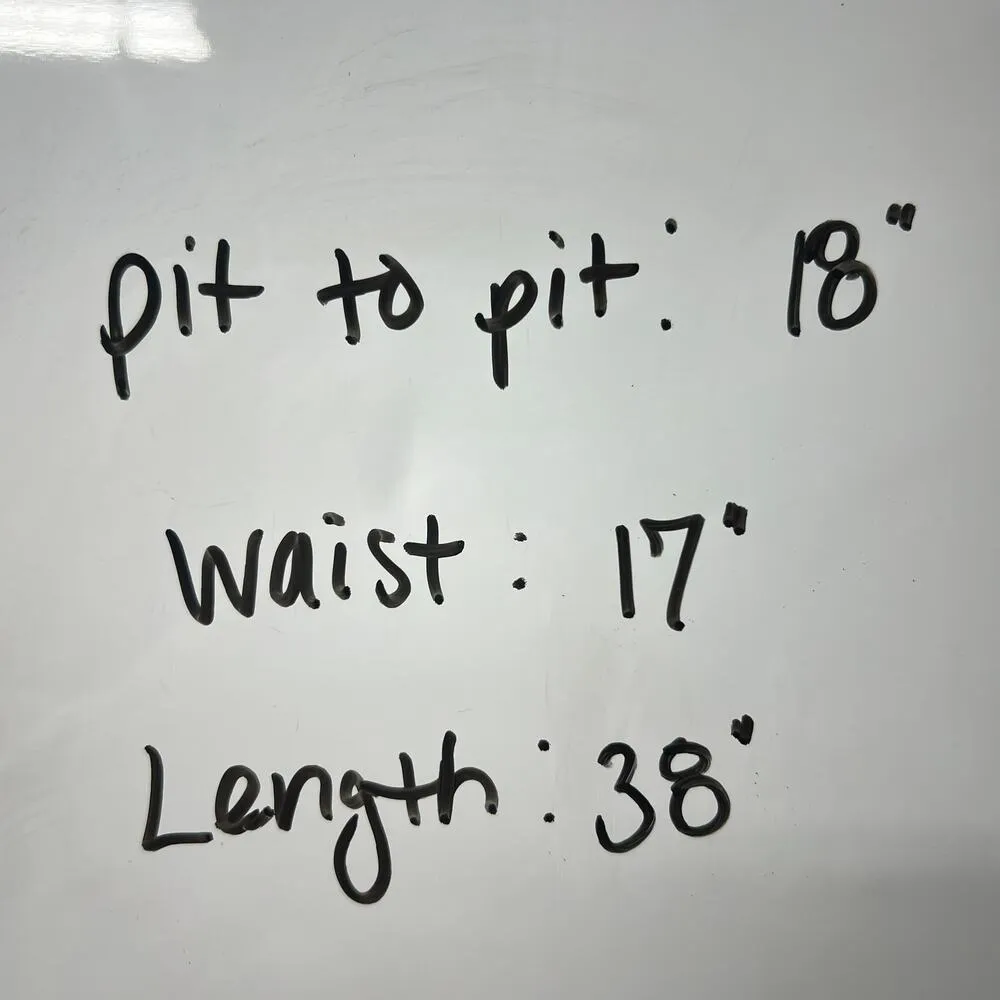 pit to pit: 18"
Waist: 17"
Length: 38"